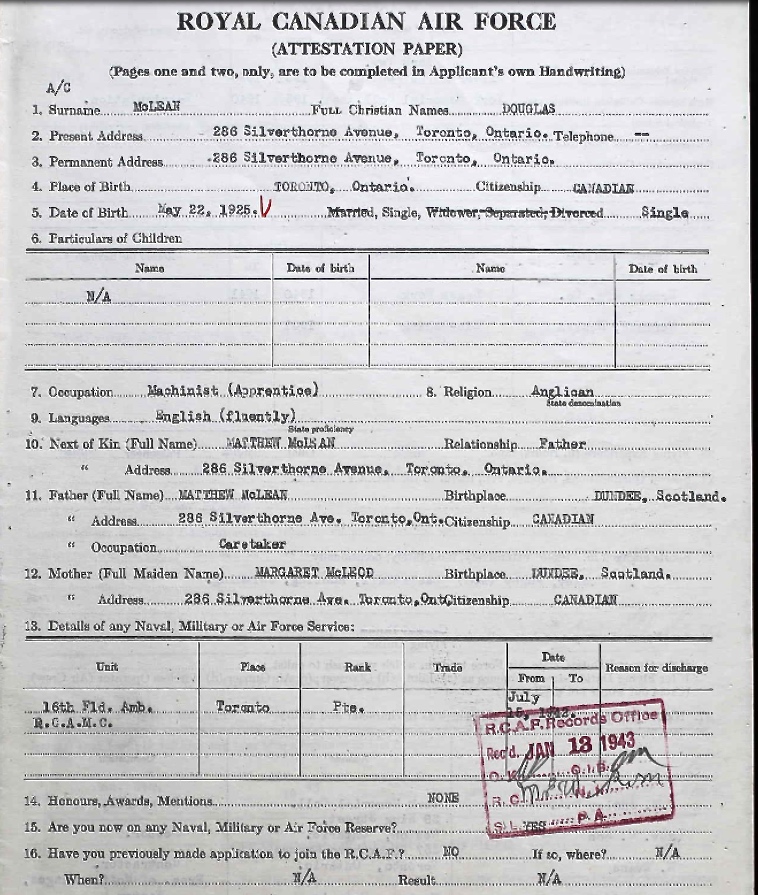 ROYAL CANADIAN AIR FORCE
(ATTESTATION PAPER)
(Pages one and two, only, are to be completed in Applicant's own Handwriting)
A/C
1. Surname McLEAN FULL Christian Names DOUGLAS
2. Present Address 286 Silverthorne Avenue, Toronto, Ontario. Telephone --
3. Permanent Address 286 Silverthorne Avenue, Toronto, Ontario.
4. Place of Birth TORONTO, Ontario. Citizenship CANADIAN
5. Date of Birth May 22, 1925. Married, Single, Widower, Separated, Divorced Single
6. Particulars of Children
Name Date of birth Name Date of birth
N/A
7. Occupation Machinist (Apprentice) 8. Religion Anglican
State denomination
9. Languages English (fluently)
State proficiency
10. Next of Kin (Full Name) MATTHEW McLEAN Relationship Father
" Address 286 Silverthorne Avenue, Toronto, Ontario.
11. Father (Full Name) MATTHEW McLEAN Birthplace DUNDEE, Scotland.
" Address 286 Silverthorne Ave. Toronto,Ont. Citizenship CANADIAN
" Occupation Caretaker
12. Mother (Full Maiden Name) MARGARET McLEOD Birthplace DUNDEE, Scotland.
" Address 286 Silverthorne Ave. Toronto,Ont. Citizenship CANADIAN
13. Details of any Naval, Military or Air Force Service:
Unit Place Rank Trade Date Reason for discharge
From To
July
16th Fld. Amb. Toronto Pte.
R.C.A.M.C.
R.C.A.F. Records Office
Rec'd. JAN 13 1943
14. Honours, Awards, Mentions NONE
15. Are you now on any Naval, Military or Air Force Reserve?
P.A.
16. Have you previously made application to join the R.C.A.F.? NO If so, where? N/A
When? N/A Result N/A